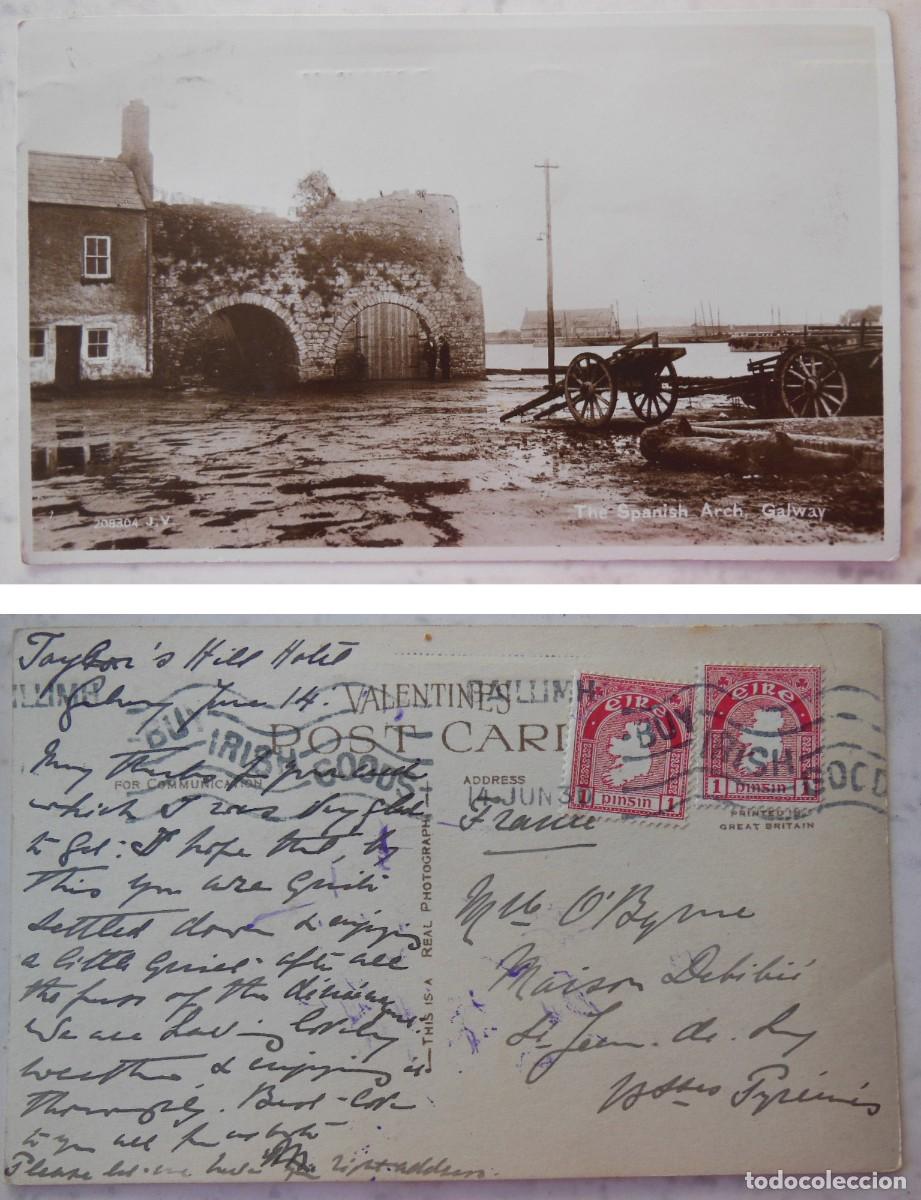 208304 J.V.
The Spanish Arch, Galway
Taylor's Hill Hotel
Galway June 14
VALENTINE'S
POST CARD
FOR COMMUNICATION
ADDRESS
PRINTED IN
GREAT BRITAIN
THIS IS A REAL PHOTOGRAPH
GAILLIMH
BUY
IRISH
GOODS
14 JUN 3
ÉIRE
1 PINSIN 1
ÉIRE
1 PINSIN 1
Many thanks for
which I was very glad
to get: I hope that, by
this you are quite
settled down & enjoying
a little quiet after all
the fuss of the
We are having lovely
weather & enjoying it
thoroughly. Best love
to you all from us both
Please let me have the right address.
France
Mlle O'Byrne
Maison
St Jean. de. Luz
Basses Pyrénées
todocoleccion